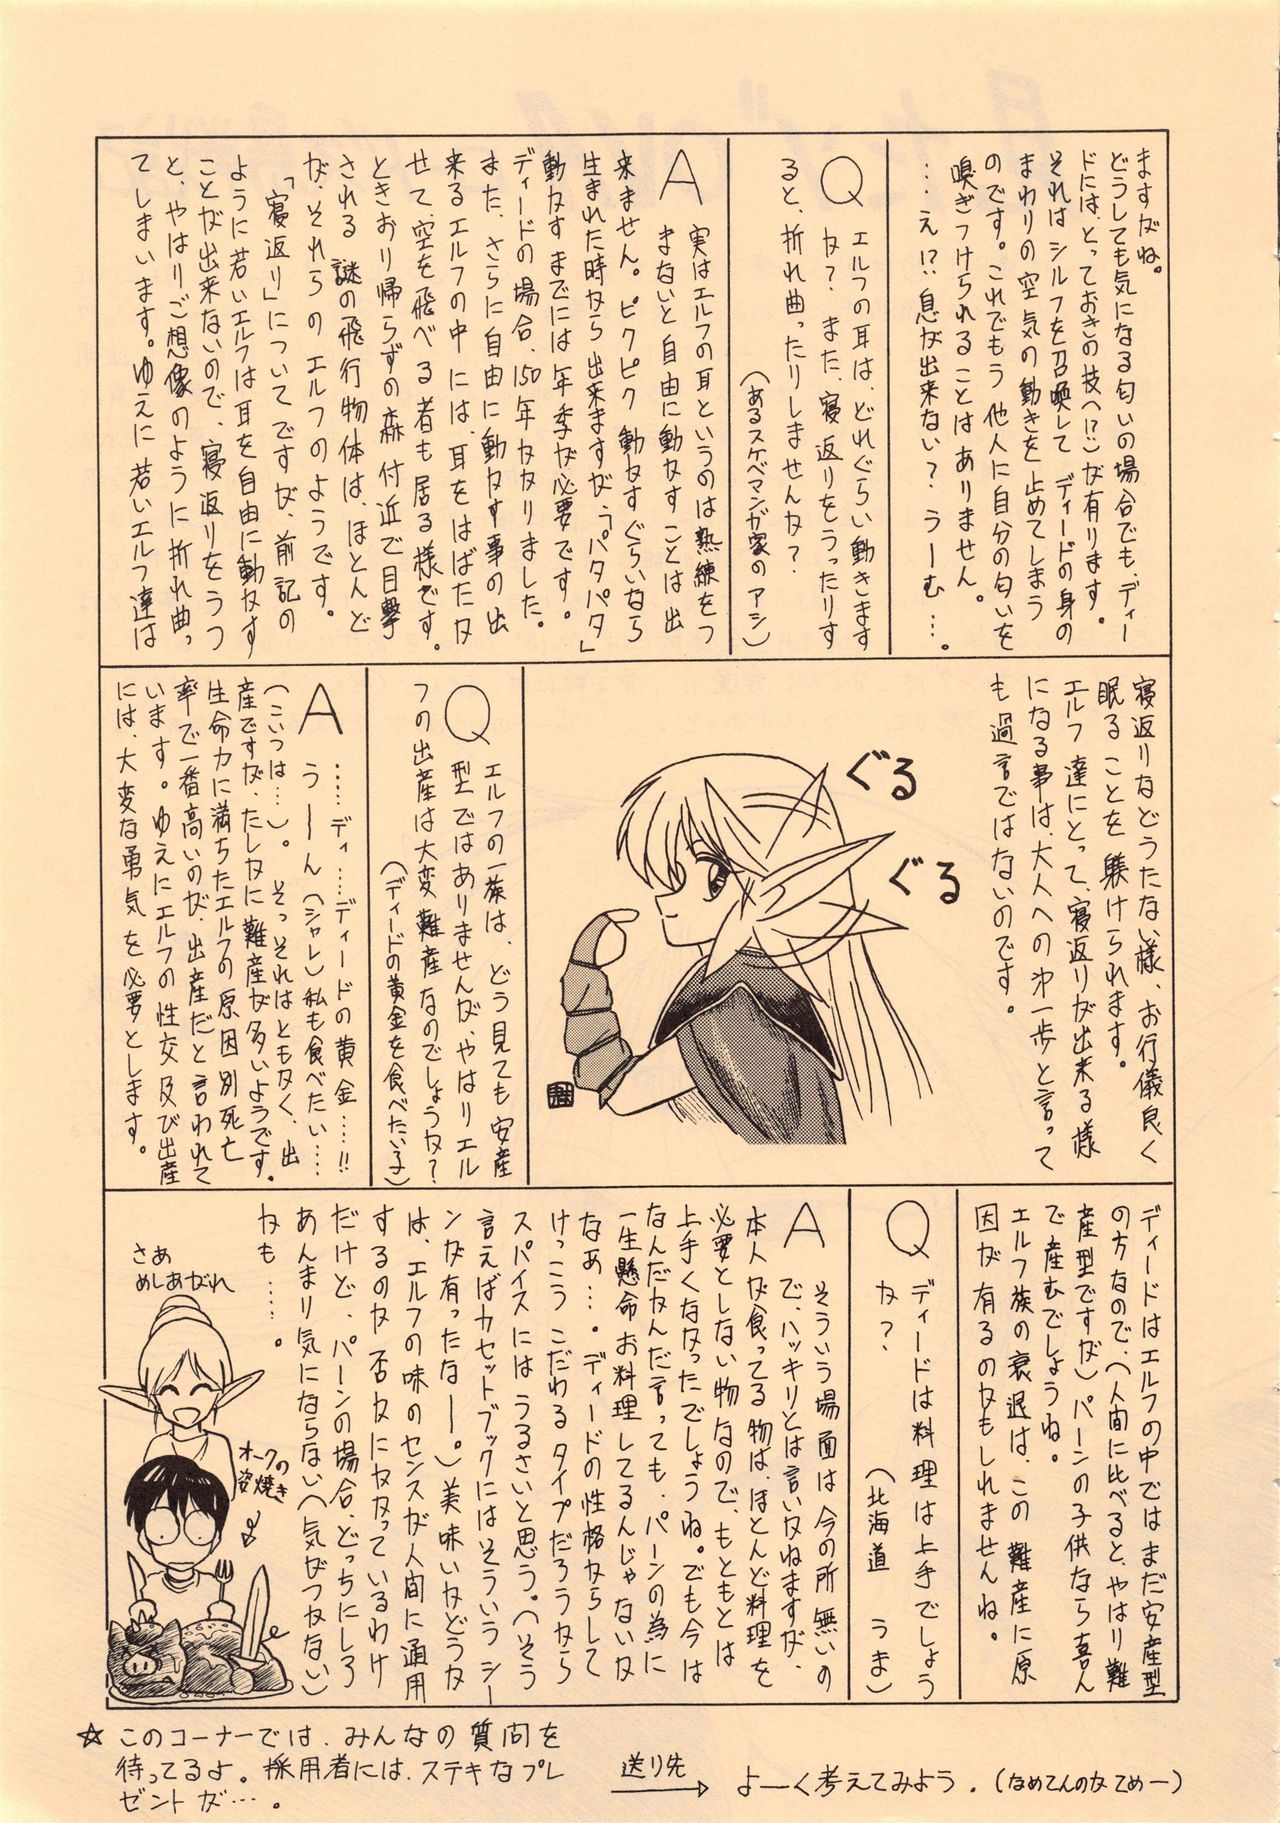 ますがね。
どうしても気になる匂いの場合でも、ディー
ドには、とっておきの技（!?）が有ります。
それはシルフを召喚して ディードの身の
まわりの空気の動きを止めてしまう
のです。これでもう他人に自分の匂いを
嗅ぎつけられることはありません。
…え!?息が出来ない？うーむ…。
Q エルフの耳は、どれぐらい動きます
か？また、寝返りをうったりす
ると、折れ曲ったりしませんか？
（あるスケベマンガ家のアシ）
A 実はエルフの耳というのは熟練をつ
まないと自由に動かすことは出
来ません。ピクピク動かすぐらいなら
生まれた時から出来ますが、「パタパタ」
動かすまでには年季が必要です。
ディードの場合、150年かかりました。
また、さらに自由に動かす事の出
来るエルフの中には、耳をはばたか
せて、空を飛べる者も居る様です。
ときおり帰らずの森付近で目撃
される謎の飛行物体は、ほとんど
が、それらのエルフのようです。
「寝返り」についてですが、前記の
ように若いエルフは耳を自由に動かす
ことが出来ないので、寝返りをうつ
と、やはりご想像のように折れ曲っ
てしまいます。ゆえに若いエルフ達は
寝返りなどうたない様、お行儀良く
眠ることを躾けられます。
エルフ達にとって、寝返りが出来る様
になる事は、大人への第一歩と言って
も過言ではないのです。
ぐる
ぐる
Q エルフの一族は、どう見ても安産
型ではありませんが、やはりエル
フの出産は大変難産なのでしょうか？
（ディードの黄金を食べたい子）
A ……ディ……ディードの黄金……!!
うーん（シャレ）私も食べたい……
（こいつは…）。そっそれはともかく、出
産ですが、たしかに難産が多いようです。
生命力に満ちたエルフの原因別死亡
率で一番高いのが、出産だと言われて
います。ゆえにエルフの性交及び出産
には、大変な勇気を必要とします。
ディードはエルフの中ではまだ安産型
の方なので、（人間に比べると、やはり難
産型ですが）パーンの子供なら喜ん
で産むでしょうね。
エルフ族の衰退は、この難産に原
因が有るのかもしれませんね。
Q ディードは料理は上手でしょう
か？
（北海道 うま）
A そういう場面は今の所無いの
で、ハッキリとは言いかねますが、
本人が食ってる物は、ほとんど料理を
必要としない物なので、もともとは
上手くなかったでしょうね。でも今は
なんだかんだ言っても、パーンの為に
一生懸命お料理してるんじゃないか
なぁ…。ディードの性格からして
けっこうこだわるタイプだろうから
スパイスにはうるさいと思う。（そう
言えばカセットブックにはそういうシー
ンが有ったなー。）美味いかどうか
は、エルフの味のセンスが人間に通用
するのか否かにかかっているわけ
だけど、パーンの場合、どっちにしろ
あんまり気にならない（気がつかない）
かも……。
さあ
めしあがれ
オークの
姿焼き
☆このコーナーでは、みんなの質問を
待ってるよ。採用者には、ステキなプレ
ゼントが…。
送り先
よーく考えてみよう。（なめてんのかてめー）